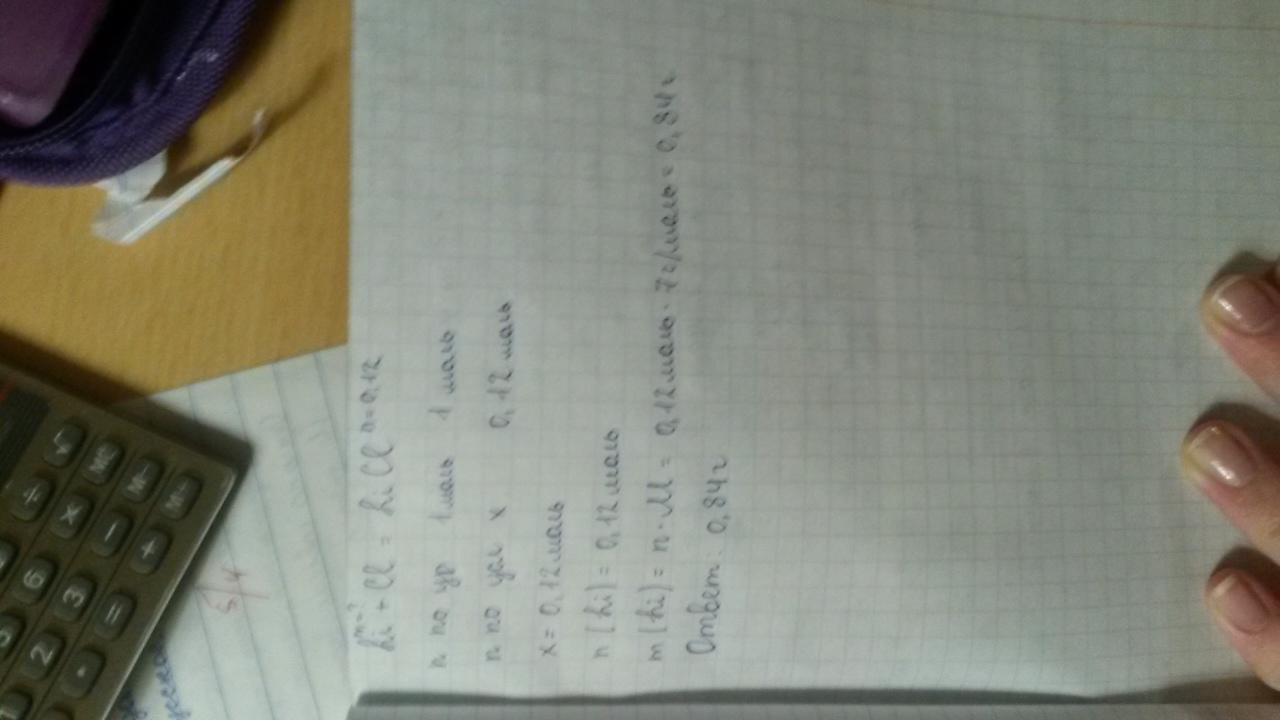 m=?
Li + Cl = LiCl n=0,12
n по ур 1моль 1 моль
n по усл x 0,12 моль
x = 0,12моль
n (Li) = 0,12 моль
m (Li) = n · M = 0,12моль · 7г/моль = 0,84г
Ответ: 0,84г
√
MC
M-
M+
÷
×
-
+
6
3
=
5
2
.
1
5/4